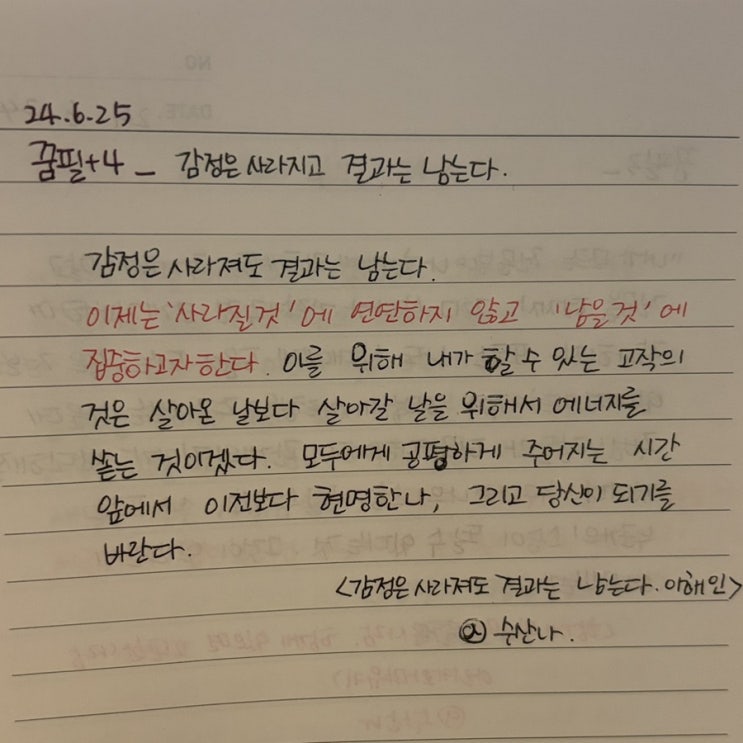 24.6.25
꿈필+4 _ 감정은 사라지고 결과는 남는다.
감정은 사라져도 결과는 남는다.
이제는 '사라질것'에 연연하지 않고 '남을것'에
집중하고자한다. 이를 위해 내가 할 수 있는 고작의
것은 살아온 날보다 살아갈 날을 위해서 에너지를
쏟는 것이겠다. 모두에게 공평하게 주어지는 시간
앞에서 이전보다 현명한 나, 그리고 당신이 되기를
바란다.
<감정은 사라져도 결과는 남는다. 이해인>
수산나.
NO
DATE.